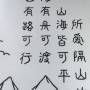 所愛隔山
山海皆可平
有舟可渡
有路可行